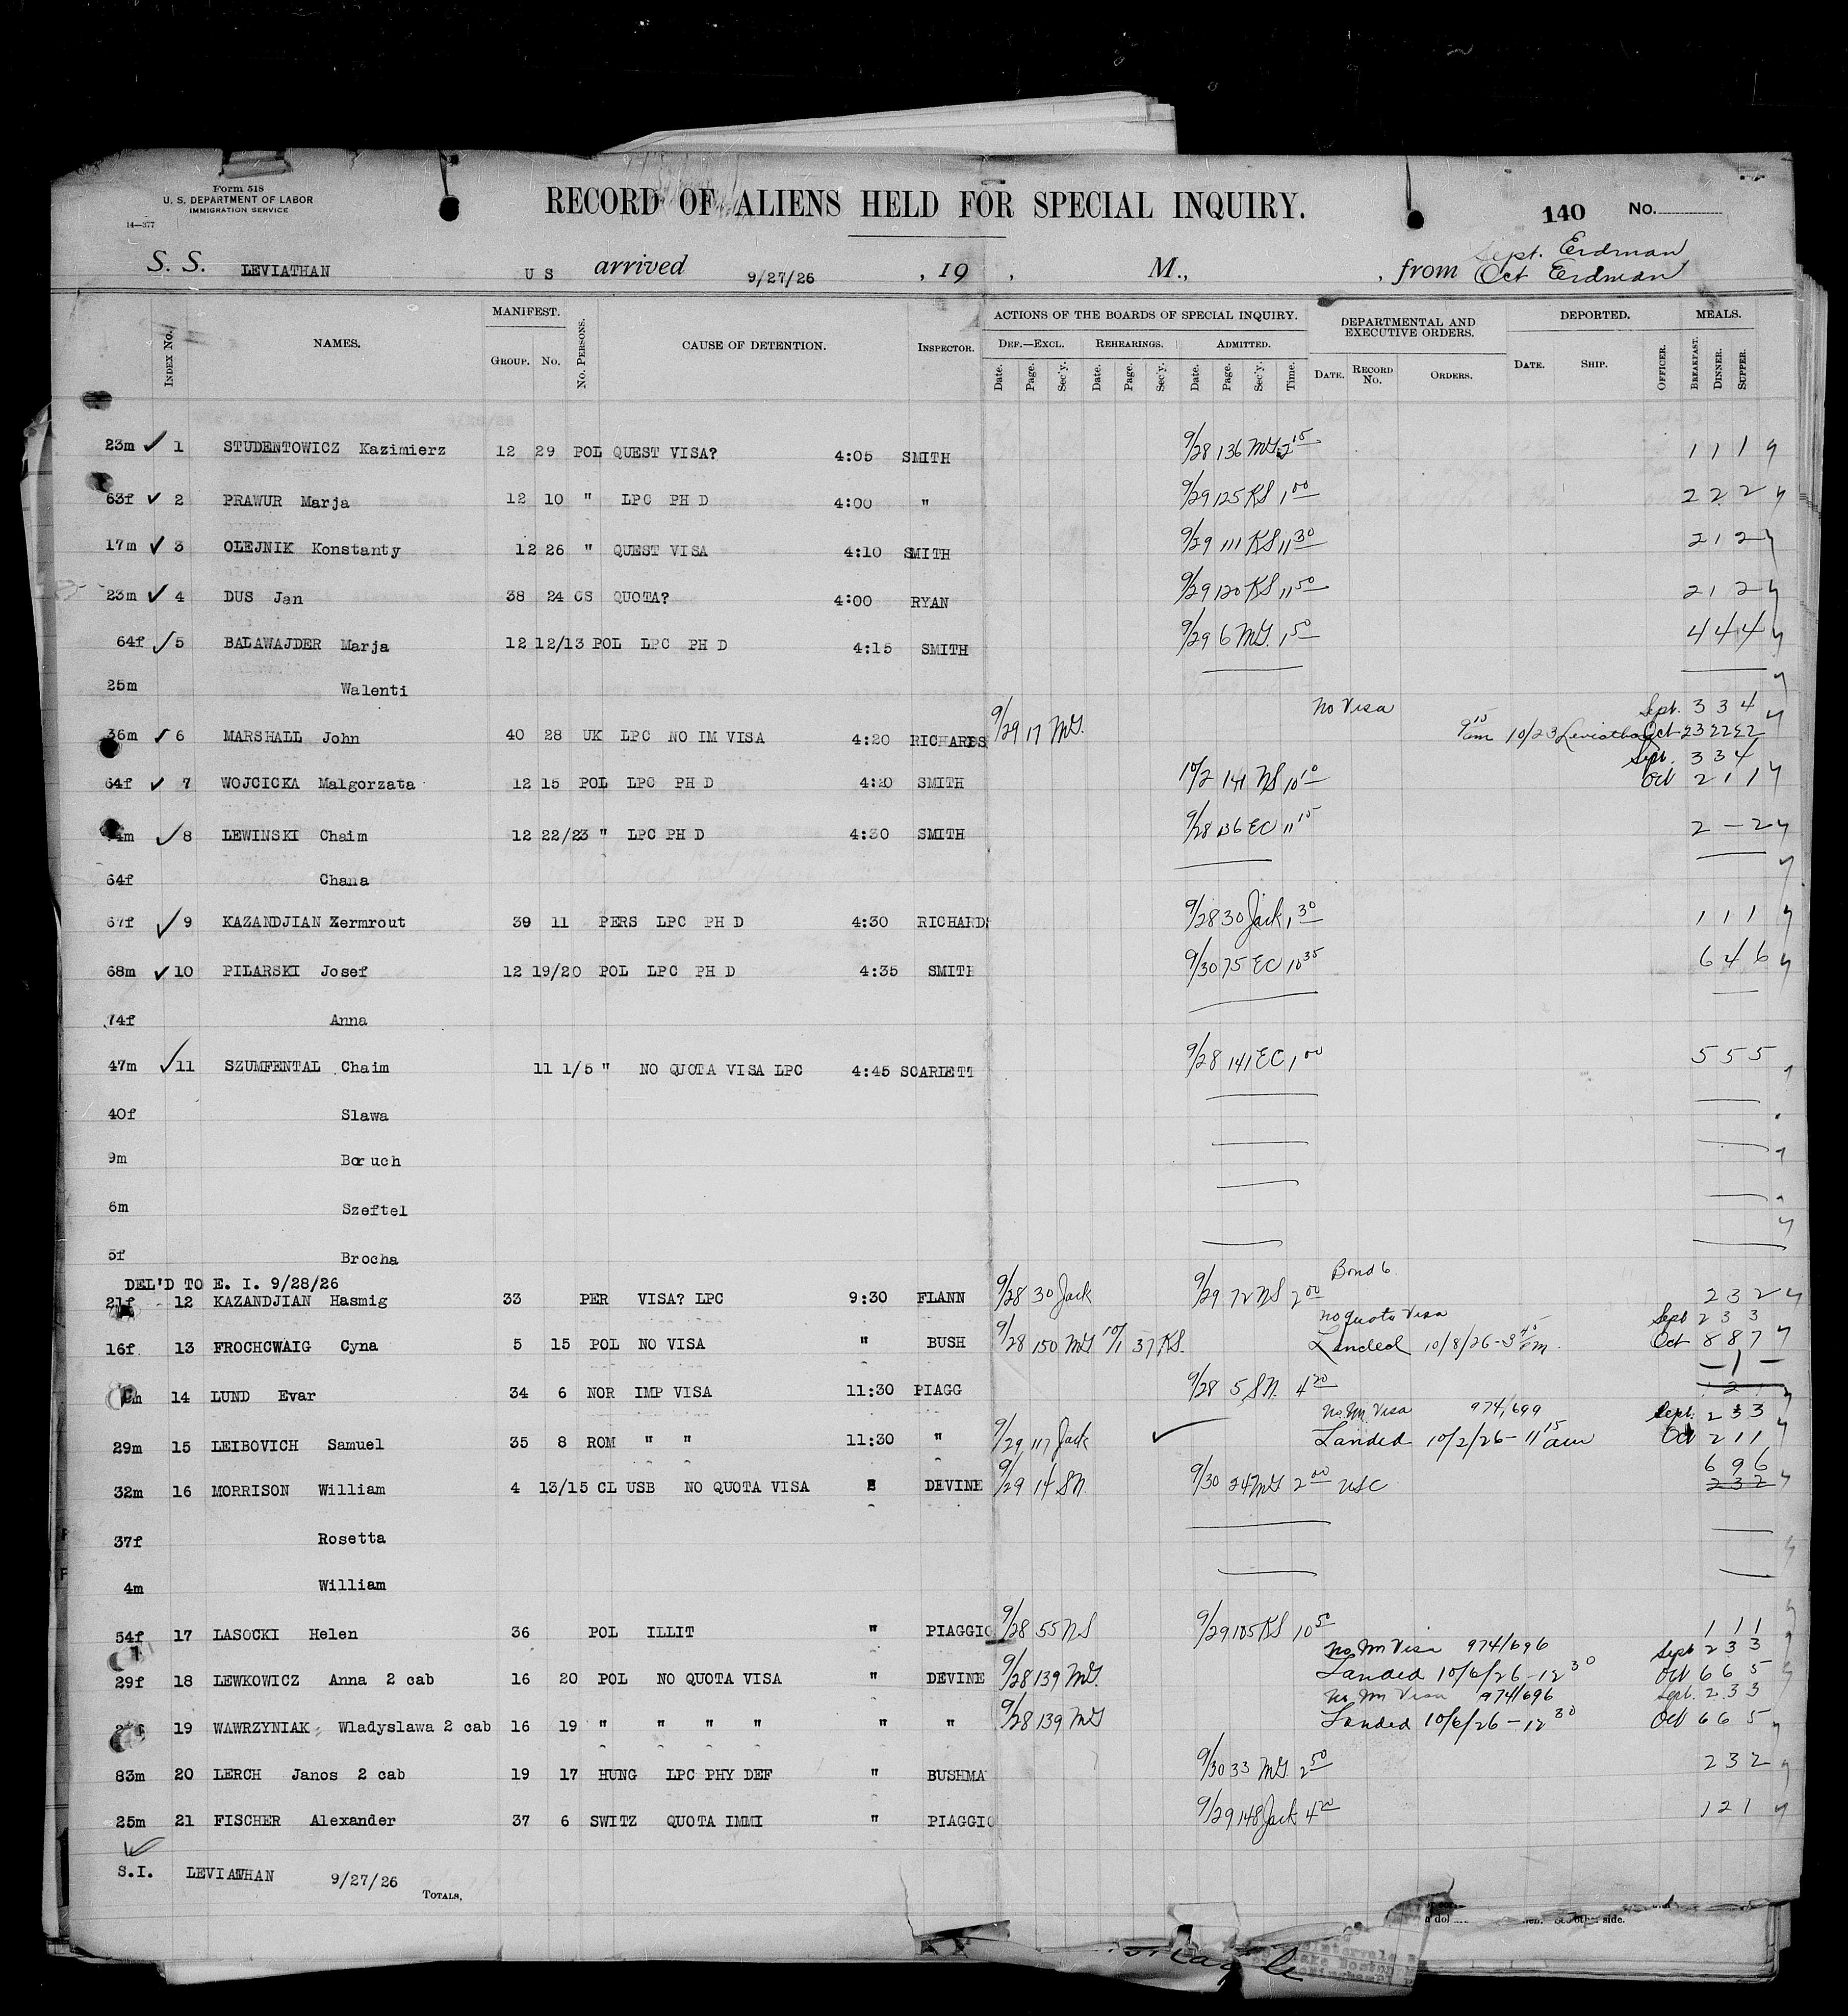 Form 518
U. S. DEPARTMENT OF LABOR
IMMIGRATION SERVICE
14—377
RECORD OF ALIENS HELD FOR SPECIAL INQUIRY.
140 No.
S. S. LEVIATHAN U S arrived 9/27/26 , 19 , M., , from Sept. Erdman
Oct Erdman
Index No. NAMES. MANIFEST. GROUP. No. No. PERSONS. CAUSE OF DETENTION. INSPECTOR. ACTIONS OF THE BOARDS OF SPECIAL INQUIRY. DEPARTMENTAL AND EXECUTIVE ORDERS. DEPORTED. MEALS.
DEF.—EXCL. REHEARINGS. ADMITTED.
Date. Page. Sec'y. Date. Page. Sec'y. Date. Page. Sec'y. Time. DATE. RECORD No. ORDERS. DATE. SHIP. OFFICER. BREAKFAST. DINNER. SUPPER.
23m 1 STUDENTOWICZ Kazimierz 12 29 POL QUEST VISA? 4:05 SMITH 9/28 136 MG 2 15 1 1 1
63f 2 PRAWUR Marja 12 10 " LPC PH D 4:00 " 9/29 125 KS 1 00 2 2 2
17m 3 OLEJNIK Konstanty 12 26 " QUEST VISA 4:10 SMITH 9/29 111 KS 11 30 2 1 2
23m 4 DUS Jan 38 24 CS QUOTA? 4:00 RYAN 9/29 120 KS 11 50 2 1 2
64f 5 BALAWAJDER Marja 12 12/13 POL LPC PH D 4:15 SMITH 9/29 6 MG. 1 50 4 4 4
25m Walenti
No Visa Sept. 3 3 4
36m 6 MARSHALL John 40 28 UK LPC NO IM VISA 4:20 RICHARDS 9/29 17 MG. 9 15 am 10/23 Leviathan Oct 23 22 22
Sept. 3 3 4
64f 7 WOJCICKA Malgorzata 12 15 POL LPC PH D 4:20 SMITH 10/2 141 NS 10 10 Oct 2 1 1
8 LEWINSKI Chaim 12 22/23 " LPC PH D 4:30 SMITH 9/28 136 EC 11 15 2 – 2
64f Chana
67f 9 KAZANDJIAN Zermrout 39 11 PERS LPC PH D 4:30 RICHARDS 9/28 30 Jack 1 30 1 1 1
68m 10 PILARSKI Josef 12 19/20 POL LPC PH D 4:35 SMITH 9/30 75 EC 10 35 6 4 6
74f Anna
47m 11 SZUMFENTAL Chaim 11 1/5 " NO QUOTA VISA LPC 4:45 SCARLETT 9/28 141 EC 1 00 5 5 5
40f Slawa
9m Boruch
6m Szeftel
5f Brocha
DEL'D TO E. I. 9/28/26 Bond 6
21f 12 KAZANDJIAN Hasmig 33 PER VISA? LPC 9:30 FLANN 9/28 30 Jack 9/29 72 NS 2 00 2 3 2
No Quota Visa Sept 2 3 3
16f 13 FROCHCWAIG Cyna 5 15 POL NO VISA " BUSH 9/28 150 MG 10/1 37 KS. Landed 10/8/26 – 3 45 Pm. Oct 8 8 7
– 1 –
14 LUND Evar 34 6 NOR IMP VISA 11:30 PIAGG 9/28 5 SN. 4 20
No Im Visa 974,699 Sept. 2 3 3
29m 15 LEIBOVICH Samuel 35 8 ROM " " 11:30 " 9/29 117 Jack Landed 10/2/26 – 11 15 am Oct 2 1 1
6 9 6
32m 16 MORRISON William 4 13/15 CL USB NO QUOTA VISA DEVINE 9/29 14 SN 9/30 24 MG 2 00 USC 2 3 2
37f Rosetta
4m William
54f 17 LASOCKI Helen 36 POL ILLIT " PIAGGIO 9/28 55 NS 9/29 105 KS 10 50 1 1 1
No Im Visa 974/696 Sept 2 3 3
29f 18 LEWKOWICZ Anna 2 cab 16 20 POL NO QUOTA VISA " DEVINE 9/28 139 MG. Landed 10/6/26 – 12 30 Oct 6 6 5
No Im Visa 974/696 Sept. 2 3 3
19 WAWRZYNIAK Wladyslawa 2 cab 16 19 " " " " " " 9/28 139 MG Landed 10/6/26 – 12 30 Oct 6 6 5
83m 20 LERCH Janos 2 cab 19 17 HUNG LPC PHY DEF " BUSHMA 9/30 33 MG. 2 50 2 3 2
25m 21 FISCHER Alexander 37 6 SWITZ QUOTA IMMI " PIAGGIO 9/29 148 Jack 4 20 1 2 1
S.I. LEVIATHAN 9/27/26
TOTALS,
other side.